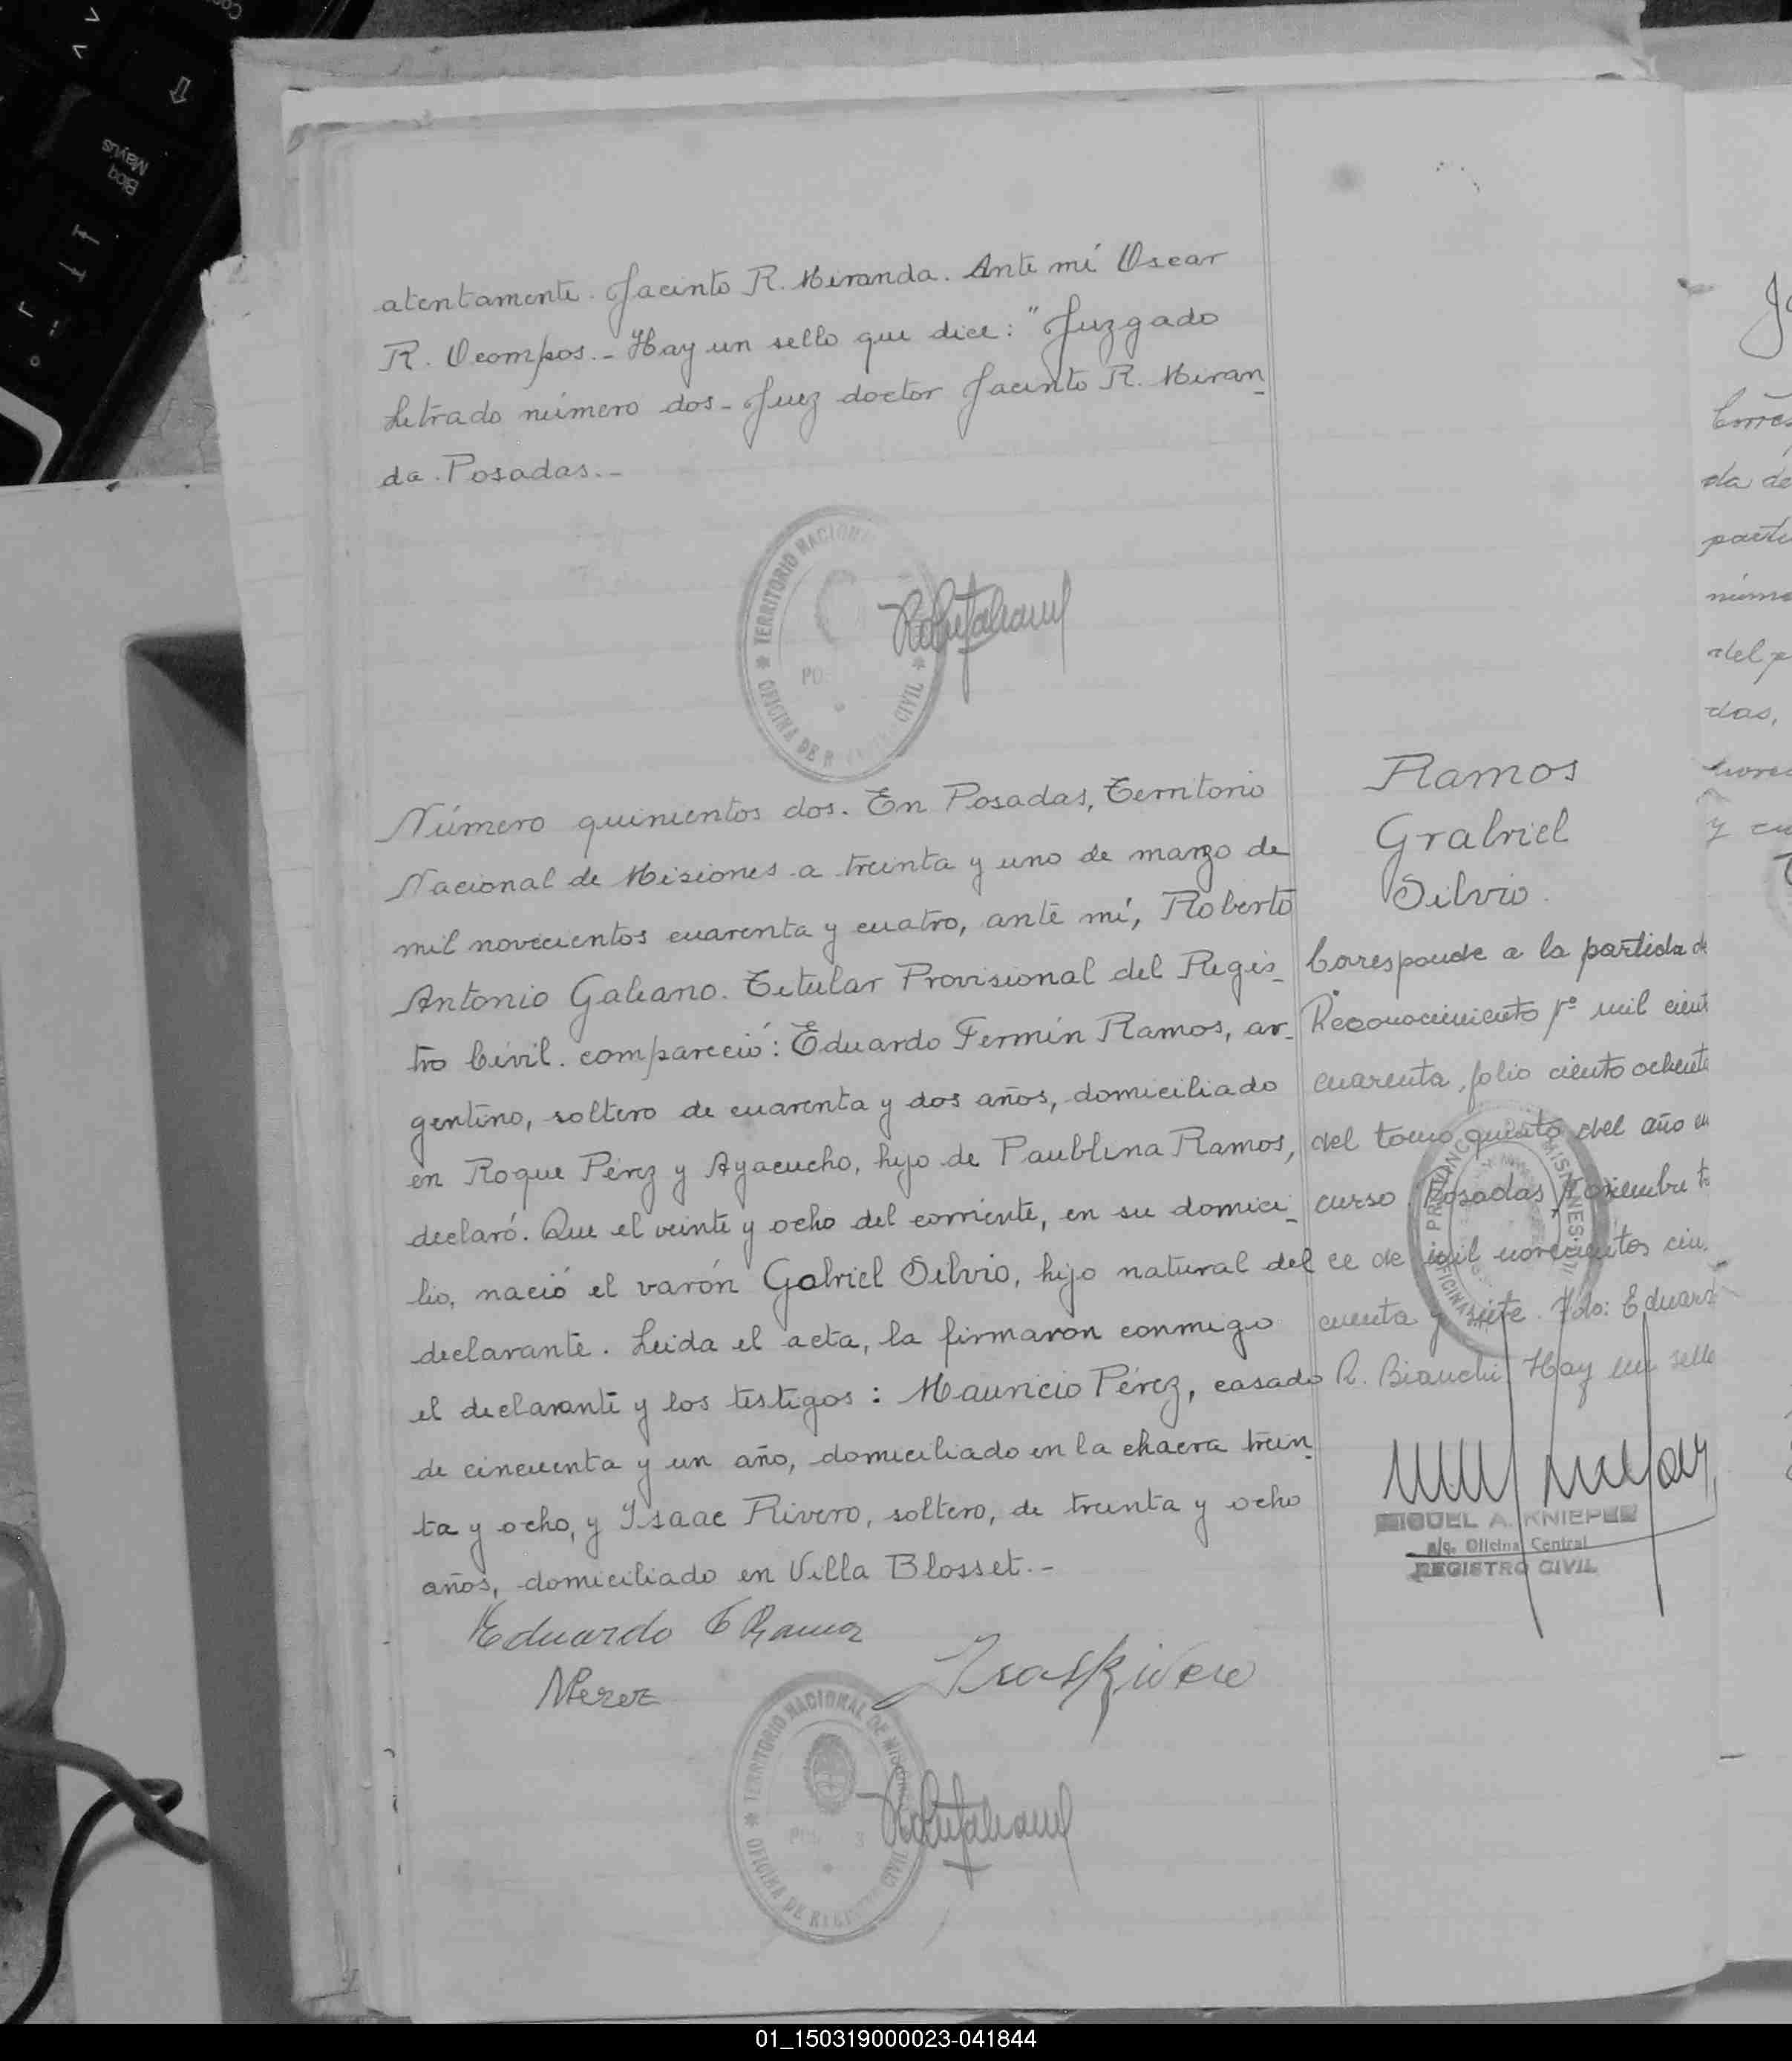 atentamente. Jacinto R. Miranda. Ante mí Oscar
R. Ocompos. - Hay un sello que dice: "Juzgado
Letrado número dos - Juez doctor Jacinto R. Miran-
da. Posadas. -
TERRITORIO NACIONAL
OFICINA DE R CIVIL
Número quinientos dos. En Posadas, Territorio
Nacional de Misiones a treinta y uno de marzo de
mil novecientos cuarenta y cuatro, ante mí, Roberto
Antonio Galeano. Titular Provisional del Regis-
tro Civil. compareció: Eduardo Fermín Ramos, ar-
gentino, soltero de cuarenta y dos años, domiciliado
en Roque Pérez y Ayacucho, hijo de Paublina Ramos,
declaró. Que el veinte y ocho del corriente, en su domici-
lio, nació el varón Gabriel Silvio, hijo natural del
declarante. Leida el acta, la firmaron conmigo
el declarante y los testigos: Mauricio Pérez, casado
de cincuenta y un año, domiciliado en la chacra trein-
ta y ocho, y Isaac Rivero, soltero, de treinta y ocho
años, domiciliado en Villa Blosset. -
Eduardo F Ramos
MPerez
Isaac Rivero
TERRITORIO NACIONAL DE MISIONES
OFICINA DE REGISTRO CIVIL
Ramos
Gabriel
Silvio.
Corresponde a la partida de
Reconocimiento nº mil cient
cuarenta, folio ciento ochenta
del tomo quinto del año en
curso. Posadas, Noviembre tr
ce de mil novecientos cin-
cuenta y siete. Fdo: Eduard
R. Bianchi. Hay un sello
MIGUEL A. KNIEPER
a/c. Oficina Central
REGISTRO CIVIL
Corres
da de
parti
núme
del p
das,
nove
y cu
Bloq
Mayús
01_150319000023-041844